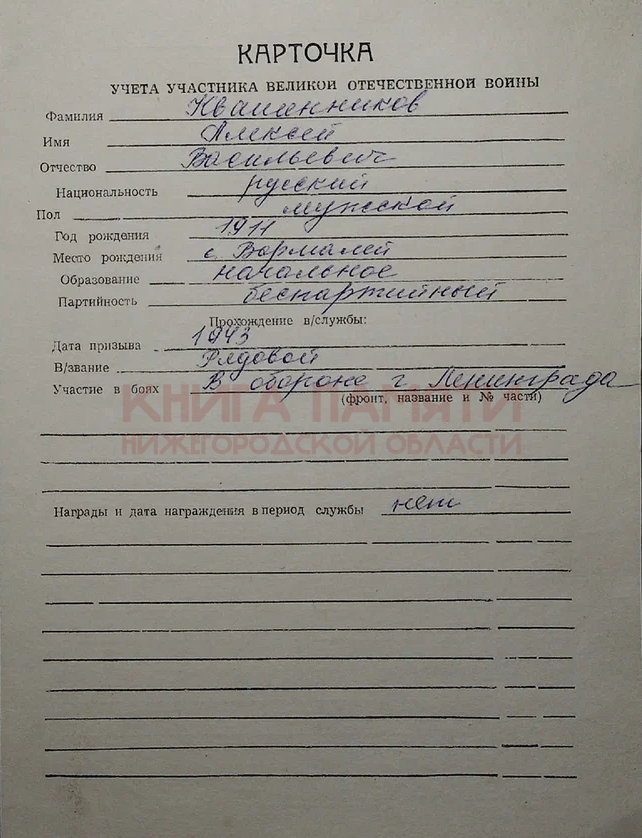 КАРТОЧКА
УЧЕТА УЧАСТНИКА ВЕЛИКОЙ ОТЕЧЕСТВЕННОЙ ВОЙНЫ
Фамилия Квашенников
Имя Алексей
Отчество Васильевич
Национальность русский
Пол мужской
Год рождения 1911
Место рождения с. Вормалей
Образование начальное
Партийность беспартийный
Прохождение в/службы:
Дата призыва 1943
В/звание Рядовой
Участие в боях В обороне г Ленинграда
(фронт, название и № части)
КНИГА ПАМЯТИ
НИЖЕГОРОДСКОЙ ОБЛАСТИ
Награды и дата награждения в период службы нет